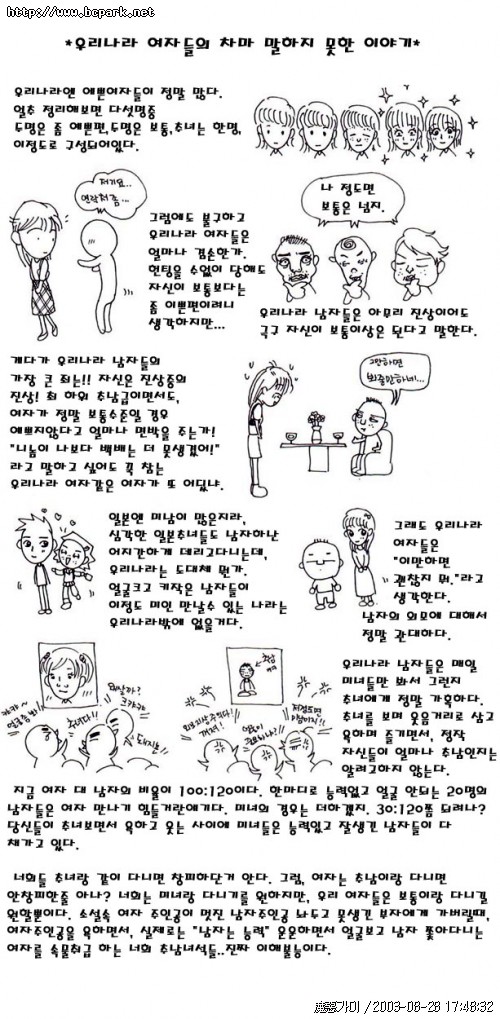 http://www.bcpark.net
*우리나라 여자들의 차마 말하지 못한 이야기*
우리나라엔 예쁜여자들이 정말 많다.
얼추 정리해보면 다섯명중
두명은 좀 예쁜편,두명은 보통,추녀는 한명,
이정도로 구성되어있다.
저기요..
연락처좀...
그럼에도 불구하고
우리나라 여자들은
얼마나 겸손한가.
헌팅을 수없이 당해도
자신이 보통보다는
좀 이쁜편이려니
생각하지만...
나 정도면
보통은 넘지.
우리나라 남자들은 아무리 진상이어도
극구 자신이 보통이상은 된다고 말한다.
게다가 우리나라 남자들의
가장 큰 죄는!! 자신은 진상중의
진상! 최 하위 추남급이면서도,
여자가 정말 보통수준일 경우
예쁘지않다고 얼마나 면박을 주는가!
"니놈이 나보다 백배는 더 못생겼어!"
라고 말하고 싶어도 꾹 참는
우리나라 여자같은 여자가 또 어딨냐.
그만하면
봐줄만하네!...
일본엔 미남이 많은지라,
심각한 일본추녀들도 남자하난
어지간하게 데리고다니는데,
우리나라는 도대체 뭔가.
얼굴크고 키작은 남자들이
이정도 미인 만날수 있는 나라는
우리나라밖에 없을거다.
그래도 우리나라
여자들은
"이만하면
괜찮지 뭐."라고
생각한다.
남자의 외모에 대해서
정말 관대하다.
추녀다!!
우리나라 남자들은 매일
미녀들만 봐서 그런지
추녀에게 정말 가혹하다.
추녀를 보며 웃음거리로 삼고
욕하며 즐기면서, 정작
자신들이 얼마나 추남인지는
알려고하지 않는다.
지금 여자 대 남자의 비율이 100:120이다. 한마디로 능력없고 얼굴 안되는 20명의
남자들은 여자 만나기 힘들거란얘기다. 미녀의 경우는 더하겠지. 30:120쯤 되려나?
당신들이 추녀보면서 욕하고 웃는 사이에 미녀들은 능력있고 잘생긴 남자들이 다
채가고 있다.
너희들 추녀랑 같이 다니면 창피하단거 안다. 그럼, 여자는 추남이랑 다니면
안창피한줄 아나? 너희는 미녀랑 다니기를 원하지만, 우리 여자들은 보통이랑 다니길
원할뿐이다. 소설속 여자 주인공이 멋진 남자주인공 놔두고 못생긴 부자에게 가버릴때,
여자주인공을 욕하면서, 실제로는 "남자는 능력" 운운하면서 얼굴보고 남자 쫓아다니는
여자를 속물취급 하는 너희 추남녀석들..진짜 이해불능이다.
가이 /2003-08-28 17:48:32